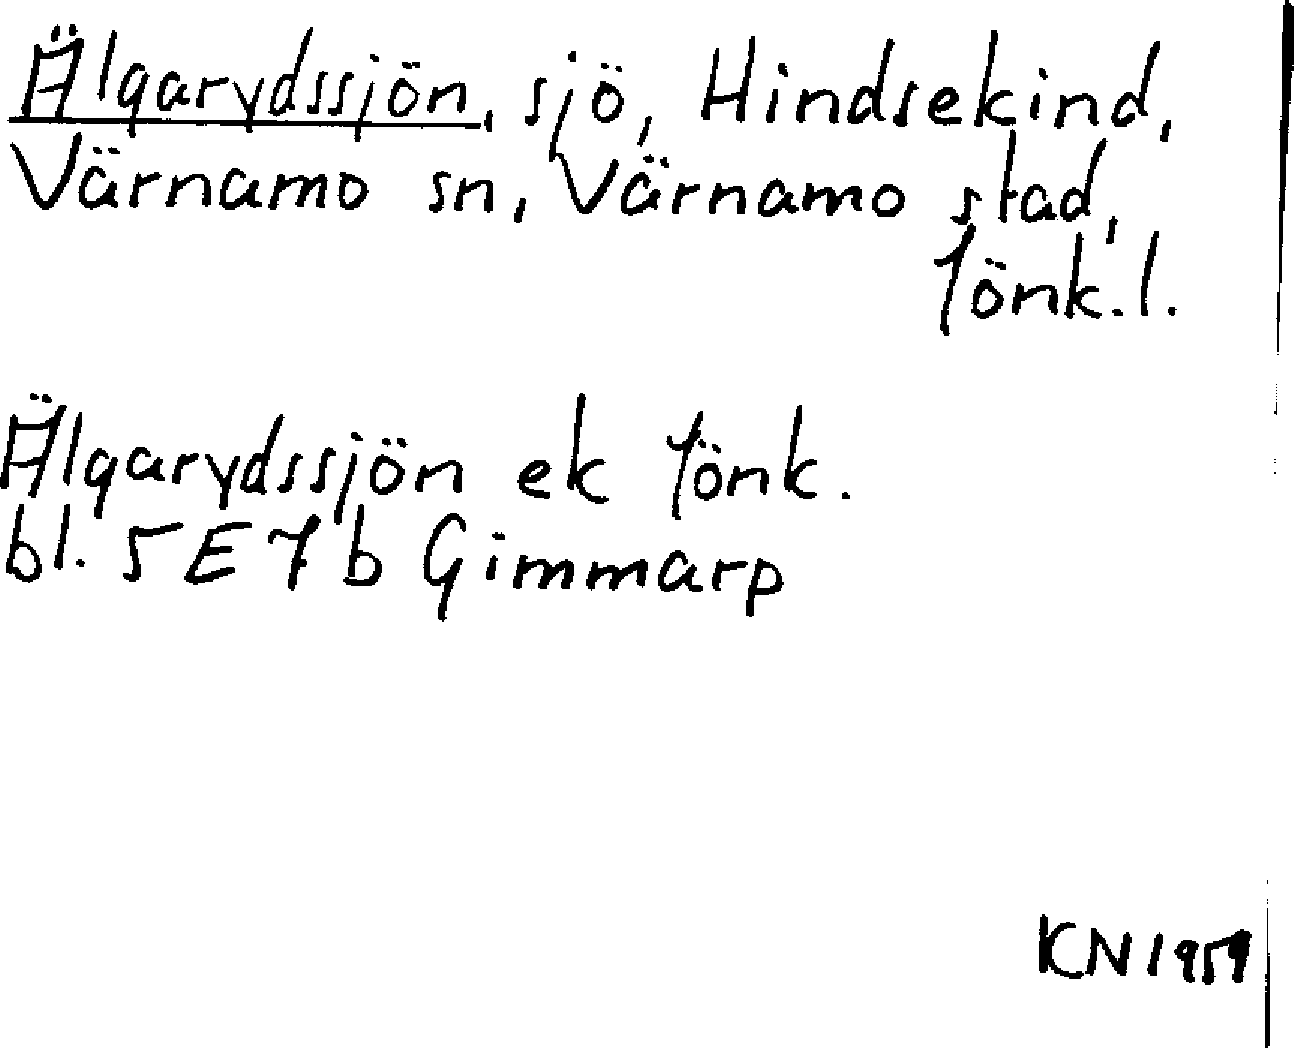 Älgarydssjön, sjö, Hindsekind,
Värnamo sn, Värnamo stad,
Jönk. l.
Älgarydssjön ek Jönk.
bl. 5E7b Gimmarp
KN 1959